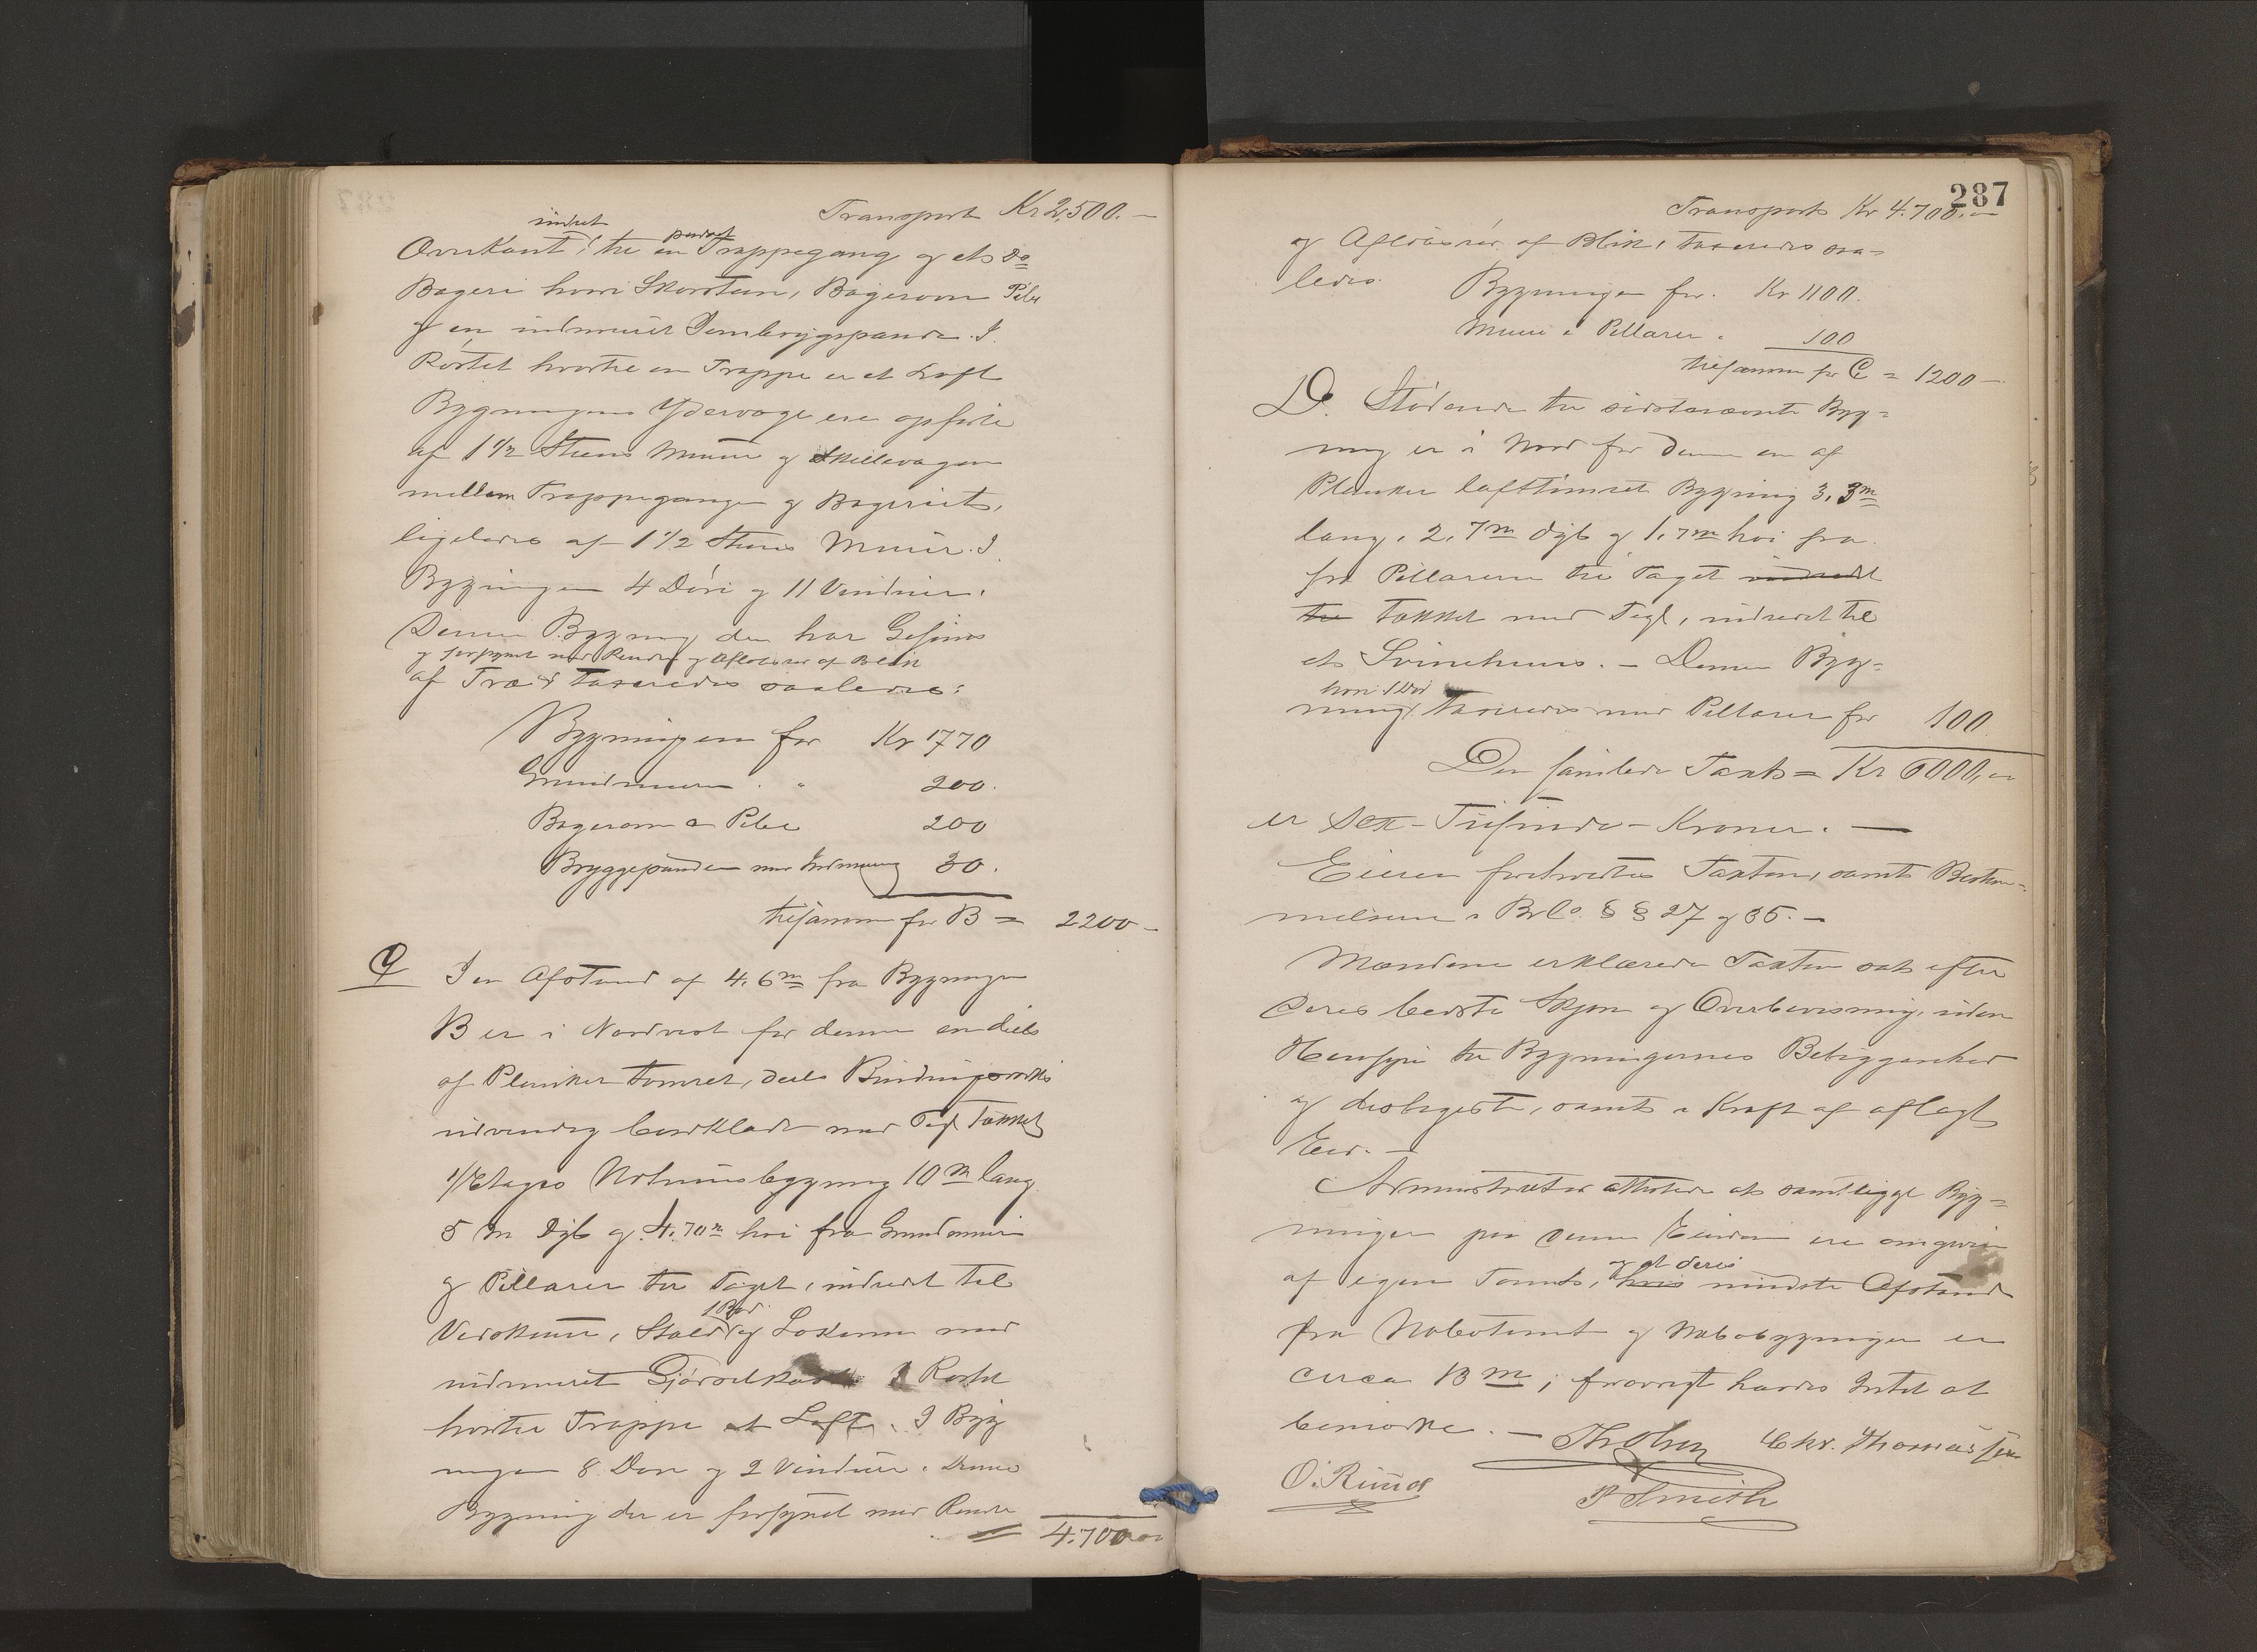 Transport Kr 2,500.—
indret pudset
Overkant til en Trappegang og et do
Bageri hvori Skorsten, Bagerovn Pibe
og en indmuret Jernbryggepande. I
Røstet hvortil en Trappe er et Loft
Bygningens Ydervæge ere opførte
af 1 1/2 Steens Muur og Skillevægen
mellem Trappegangen og Bageriet,
ligeledes af 1 1/2 Steens Muur. I
Bygningen 4 Døre og 11 Vinduer.
Denne Bygning der har Gesims
og forsynet med Render og Afløbsrør af Blik
af Træ taxeredes saaledes:
Bygningen for Kr 1770
Grundmuren . " 200.
Bagerovn & Pibe 200
Bryggepanden med Indmuring 30.
tilsammen for B = 2200 —
C I en Afstand af 4,6 m fra Bygningen
B er i Nordvest for denne en deels
af Planker tømret, deels Bindingsverks
udvendig bordklædt med Tegl Tækket
1 Etages Udhuusbygning 10 m lang
5 m dyb og 4.70 m høi fra Grundmuur
og Pillarer til Taget, indredet til
1 Bod
Vedskuur, Stald og Lokum med
indmuret Gjødselkasse I Røstet
hvortil Trappe et Loft. I Byg
ningen 8 Døre og 2 Vinduer. Denne
Bygning der er forsynet med Render
= 4.700
287
Transport Kr 4.700.—
og Afløbsrør af Blik, taxeredes saa=
ledes.
Bygningen for. Kr 1100.
Muur & Pillarer . 100
tilsammen for C = 1200 —
D. Stødende til sidstnævnte Byg=
ning er i Nord for denne en af
Planker lafttømret Bygning 3,3 m
lang, 2,7 m dyb og 1,7 m høi fra
fra Pillarerne til Taget indredet
til tækket med Tegl, indredet til
et Svinehuus. — Denne Byg=
hvori 1 Dør
ning taxeredes med Pillarer for 100
Den samlede Taxt = Kr 6000,
er Sex-Tusinde-Kroner. —
Eieren forelæstes Taxten, samt Bestem=
melserne i Brl. §§ 27 og 35. —
Mændene erklærede Taxten sat efter
deres bedste Skjøn og Overbevisning, uden
Hensyn til Bygningernes Beliggenhed
og deslige, samt i Kraft af aflagt
Eed. —
Administrator attesterede at samtlige Byg=
ninger paa denne Eiendom ere omgivne
og at deres
af egen Tomt, hvis mindste Afstand
fra Nabotomt og Nabobygninger er
circa 13 m; forøvrigt havdes Intet at
bemærke. — Th Olsen Chr. Thomassen
O. Ruud P Smith